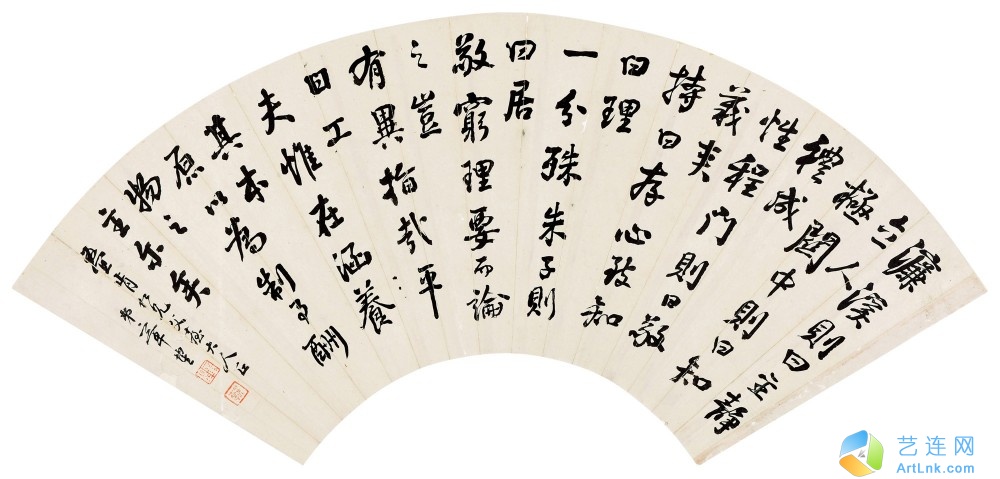 濂溪則曰主靜
立人
極關中則曰知
禮成
性程門則曰敬
義夾
持曰存心致知
曰理
一分殊朱子則
曰居
敬窮理要而論
之豈
有異指哉平
日工
夫惟在涵養
其本
原以為制事酬
物之
主尔矣
仁兄父臺大人正
艺连网
ArtLnk.com